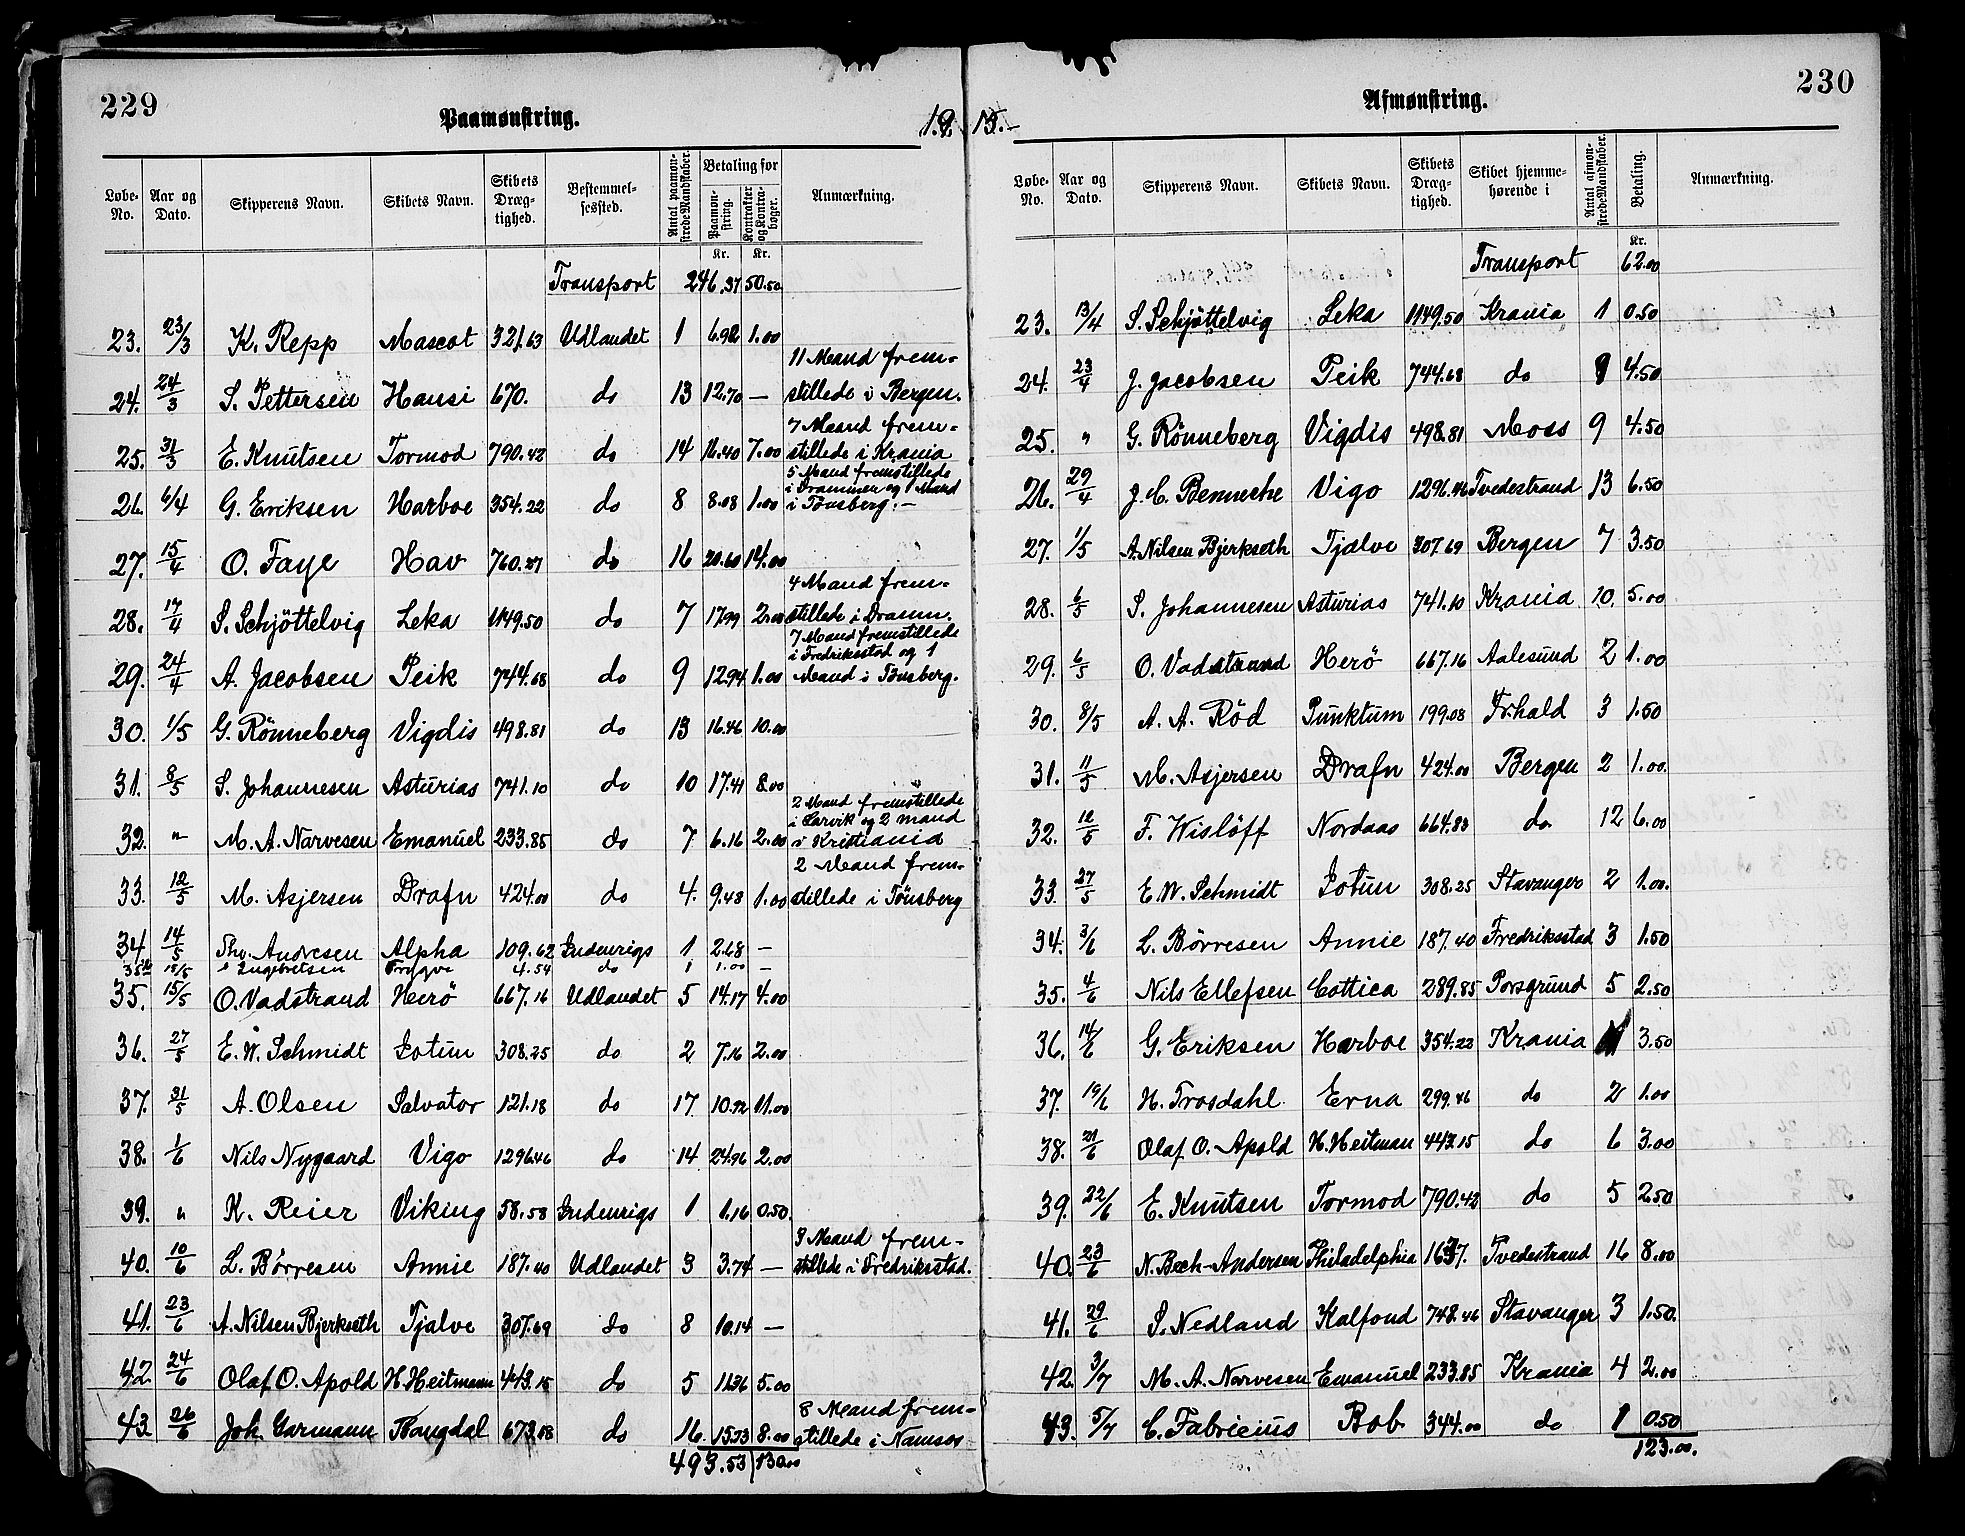 229
Paamønstring.
19
Løbe-No. Aar og Dato. Skipperens Navn. Skibets Navn. Skibets Dræg-tighed. Bestemmel-sessted. Antal paamøn-strede Mandskaber. Betaling for Paamøn-string. Kontrakter og Kontra-bøger. Anmærkning.
Kr. Kr.
Transport 246.37 50.50
23. 23/3 K. Repp Mascot 321.63 Udlandet 1 6.92 1.00
24. 24/3 S. Pettersen Hansi 670. do 13 12.70 — 11 Mand frem-stillede i Bergen.
25. 31/3 E. Knutsen Tormod 790.42 do 14 16.40 7.00 7 Mand frem-stillede i Krania
26. 6/4 G. Eriksen Harboe 354.22 do 8 8.08 1.00 5 Mand fremstillede i Drammen og 1 Mand i Tönsberg. —
27. 15/4 O. Faye Hav 760.27 do 16 20.60 14.00
28. 17/4 S. Schjöttelvig Leka 1149.50 do 7 17.99 2.00 4 Mand frem-stillede i Dramm.
29. 24/4 A. Jacobsen Peik 744.68 do 9 12.94 1.00 7 Mand fremstillede i Fredriksstad og 1 Mand i Tönsberg.
30. 1/5 G. Rönneberg Vigdis 498.81 do 13 16.46 10.00
31. 8/5 S. Johannesen Asturias 741.10 do 10 17.41 8.00
32. " M. A. Narvesen Emanuel 233.85 do 7 6.16 2.00 2 Mand fremstillede i Larvik og 2 mand i Kristiania
33. 12/5 M. Asjersen Drafn 424.00 do 4. 9.48 1.00 2 Mand frem-stillede i Tönsberg
34. 14/5 Thv. Andresen Alpha 109.62 Indenrigs 1 2.68 —
35 18/5 Ingebretsen Trygve 4.54 do 1 1.00 —
35. 15/5 O. Vadstrand Herö 667.16 Udlandet 5 14.17 4.00
36. 27/5 E. W. Schmidt Jotun 308.25 do 2 7.16 2.00
37. 31/5 A. Olsen Salvator 121.18 do 17 10.72 11.00
38. 1/6 Nils Nygaard Vigo 1296.46 do 14 24.96 2.00
39. " K. Reier Viking 58.58 Indenrigs 1 1.16 0.50.
40. 10/6 L. Börresen Annie 187.40 Udlandet 3 3.74 — 3 Mand frem-stillede i Fredriksstad.
41. 23/6 A. Nilsen Bjerkseth Tjalve 307.69 do 8 10.14 —
42. 24/6 Olaf O. Apold H. Heitmann 443.15 do 5 11.36 5.00
43. 26/6 Joh. Garmann Haugdal 673.08 do 16. 15.73 8.00 8 Mand frem-stillede i Namsos
493.53 130.00
230
Afmønstring.
15.-
Løbe-No. Aar og Dato. Skipperens Navn. Skibets Navn. Skibets Dræg-tighed. Skibet hjemme-hørende i Antal afmøn-strede Mandskaber. Betaling. Anmærkning.
Kr.
Transport 62.00
23. 13/4 S. Schjöttelvig Leka 1149.50 Krania 1 0.50
24. 23/4 J. Jacobsen Peik 744.68 do 9 4.50
25. " G. Rönneberg Vigdis 498.81 Moss 9 4.50
26. 29/4 J. C. Benneche Vigo 1296.46 Tvedestrand 13 6.50
27. 1/5 A. Nilsen Bjerkseth Tjalve 307.69 Bergen 7 3.50
28. 6/5 S. Johannesen Asturias 741.10 Krania 10. 5.00
29. 6/5 O. Vadstrand Herö 667.16 Aalesund 2 1.00
30. 8/5 A. A. Röd Punktum 199.08 Fr.hald 3 1.50
31. 11/5 M. Asjersen Drafn 424.00 Bergen 2 1.00.
32. 12/5 F. Wislöff Nordaas 664.83 do 12 6.00
33. 27/5 E. W. Schmidt Jotun 308.25 Stavanger 2 1.00.
34. 3/6 L. Börresen Annie 187.40 Fredriksstad 3 1.50
35. 4/6 Nils Ellefsen Cottica 289.85 Porsgrund 5 2.50
36. 14/6 G. Eriksen Harboe 354.22 Krania 3.50
37. 19/6 H. Trosdahl Erna 299.46 do 2 1.00
38. 21/6 Olaf O. Apold H. Heitman 443.15 do 6 3.00
39. 22/6 E. Knutsen Tormod 790.42 do 5 2.50
40. 23/6 N. Bech-Andersen Philadelphia 1637. Tvedestrand 16 8.00
41. 29/6 S. Nedland Kalfond 748.46 Stavanger 3 1.50.
42. 3/7 M. A. Narvesen Emanuel 233.85 Krania 4 2.00
43. 5/7 C. Fabricius Bob 344.00 do 1 0.50
123.00.